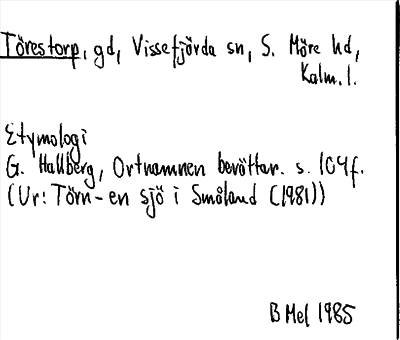 Törestorp, gd, Vissefjärda sn, S. Möre hd,
Kalm. l.
Etymologi
G. Hallberg, Ortnamnen berättar. s. 104f.
(Ur: Törn - en sjö i Småland (1981))
B Mel 1985